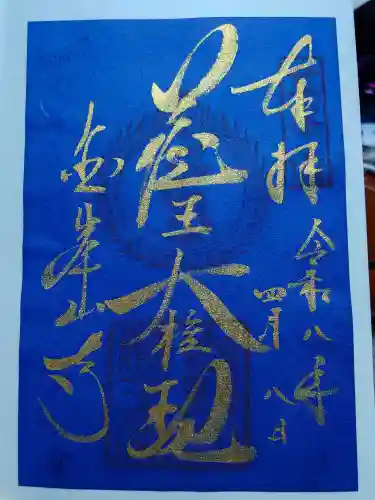 奉拝
令和八年
四月八日
蔵王大権現
金峯山寺